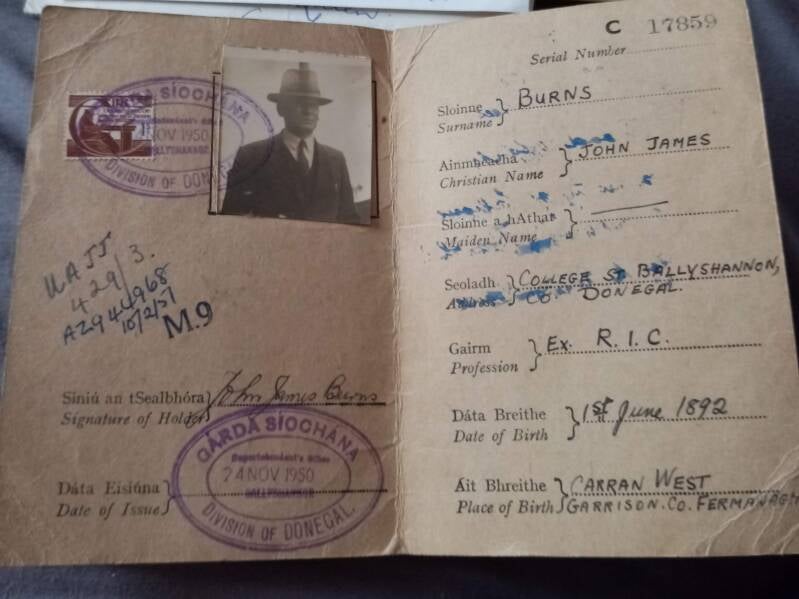 GÁRDA SÍOCHÁNA
NOV 1950
DIVISION OF DONEGAL
429/3.
AZ944968
10/2/51
M.9
Siniú an tSealbhóra
Signature of Holder
John James Burns
GÁRDA SÍOCHÁNA
Superintendent's Office
24 NOV 1950
BALLYSHANNON
DIVISION OF DONEGAL
Dáta Eisiúna
Date of Issue
C 17859
Serial Number
Sloinne
Surname
BURNS
Ainmneacha
Christian Name
JOHN JAMES
Sloinne a hAthar
Maiden Name
Seoladh
Address
COLLEGE ST BALLYSHANNON,
CO. DONEGAL.
Gairm
Profession
Ex. R. I. C.
Dáta Breithe
Date of Birth
1st June 1892
Áit Bhreithe
Place of Birth
CARRAN WEST
GARRISON. CO. FERMANAGH